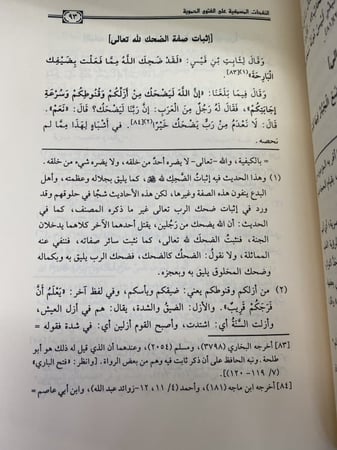 النفحات المسكية على الفتوى الحموية
٩٣
[إثبات صفة الضحك لله تعالى]
وَقَالَ لِثَابِتِ بْنِ قَيْسٍ: «لَقَدْ ضَحِكَ اللَّهُ مِمَّا فَعَلْتَ بِضَيْفِكَ
الْبَارِحَةَ»(١)[٨٣].
وَقَالَ فِيمَا بَلَغَنَا: «إنَّ اللَّهَ لَيَضْحَكُ مِنْ أَزَلِّكُمْ وَقُنُوطِكُمْ وَسُرْعَةِ
إجَابَتِكُمْ»، فَقَالَ لَهُ رَجُلٌ مِنَ الْعَرَبِ: إنَّ رَبَّنَا لَيَضْحَكُ؟ قَالَ: «نَعَمْ».
قَالَ: لَا نَعْدَمُ مِنْ رَبٍّ يَضْحَكُ خَيْرًا(٢)[٨٤]. فِي أَشْبَاهٍ لِهَذَا مِمَّا لَم
نحصه.
= بالكيفية، والله -تعالى- لا يضره أحدٌ من خلقه، ولا يضره شيء من خلقه.
(١) وهذا الحديث فيه إثباتُ الضَّحِك لله ﷻ، كما يليق بجلاله وعظمته، وأهل
البدع ينفون هذه الصفة وغيرها، لكن هذه الأحاديث شجًا في حلوقهم وقد
ورد في إثبات ضحك الرب تعالى غير ما ذكره المصنف، كما في
الحديث: أن الله يضحك من رجُلين، يقتل أحدهما الآخر كلاهما يدخلان
الجنة، فنثبتُ الضحك لله تعالى، كما نثبت سائر صفاته، فتنفي عنه
المماثلة، ولا نقولُ: الضَّحكُ كالضحك، فضحك الرب يليق به وبكماله
وضحك المخلوق يليق به وبعجزه.
(٢) من أزلكم وقنوطكم يعني: ضيقكم ويأسكم، وفي لفظ آخر: «يَعْلَمُ أَنَّ
فَرَجَكُمْ قَرِيبٌ». والأزل: الضيقُ والشدة، يقال: هم في أزل العيش،
وأزلت السَّنَةُ أي: اشتدت، وأصبح القوم أزلين أي: في شدة فقوله =
[٨٣] أخرجه البخاري (٣٧٩٨)، ومسلم (٢٠٥٤)، وعندهما أن الذي قيل له ذلك هو أبو
طلحة. ونبه الحافظ على أن ذكر ثابت فيه وهم من بعض الرواة. [وانظر: «فتح الباري»
(٧/ ١١٩- ١٢٠)].
[٨٤] أخرجه ابن ماجه (١٨١)، وأحمد (٤/ ١١، ١٢-زوائد عبد الله)، وابن أبي عاصم =